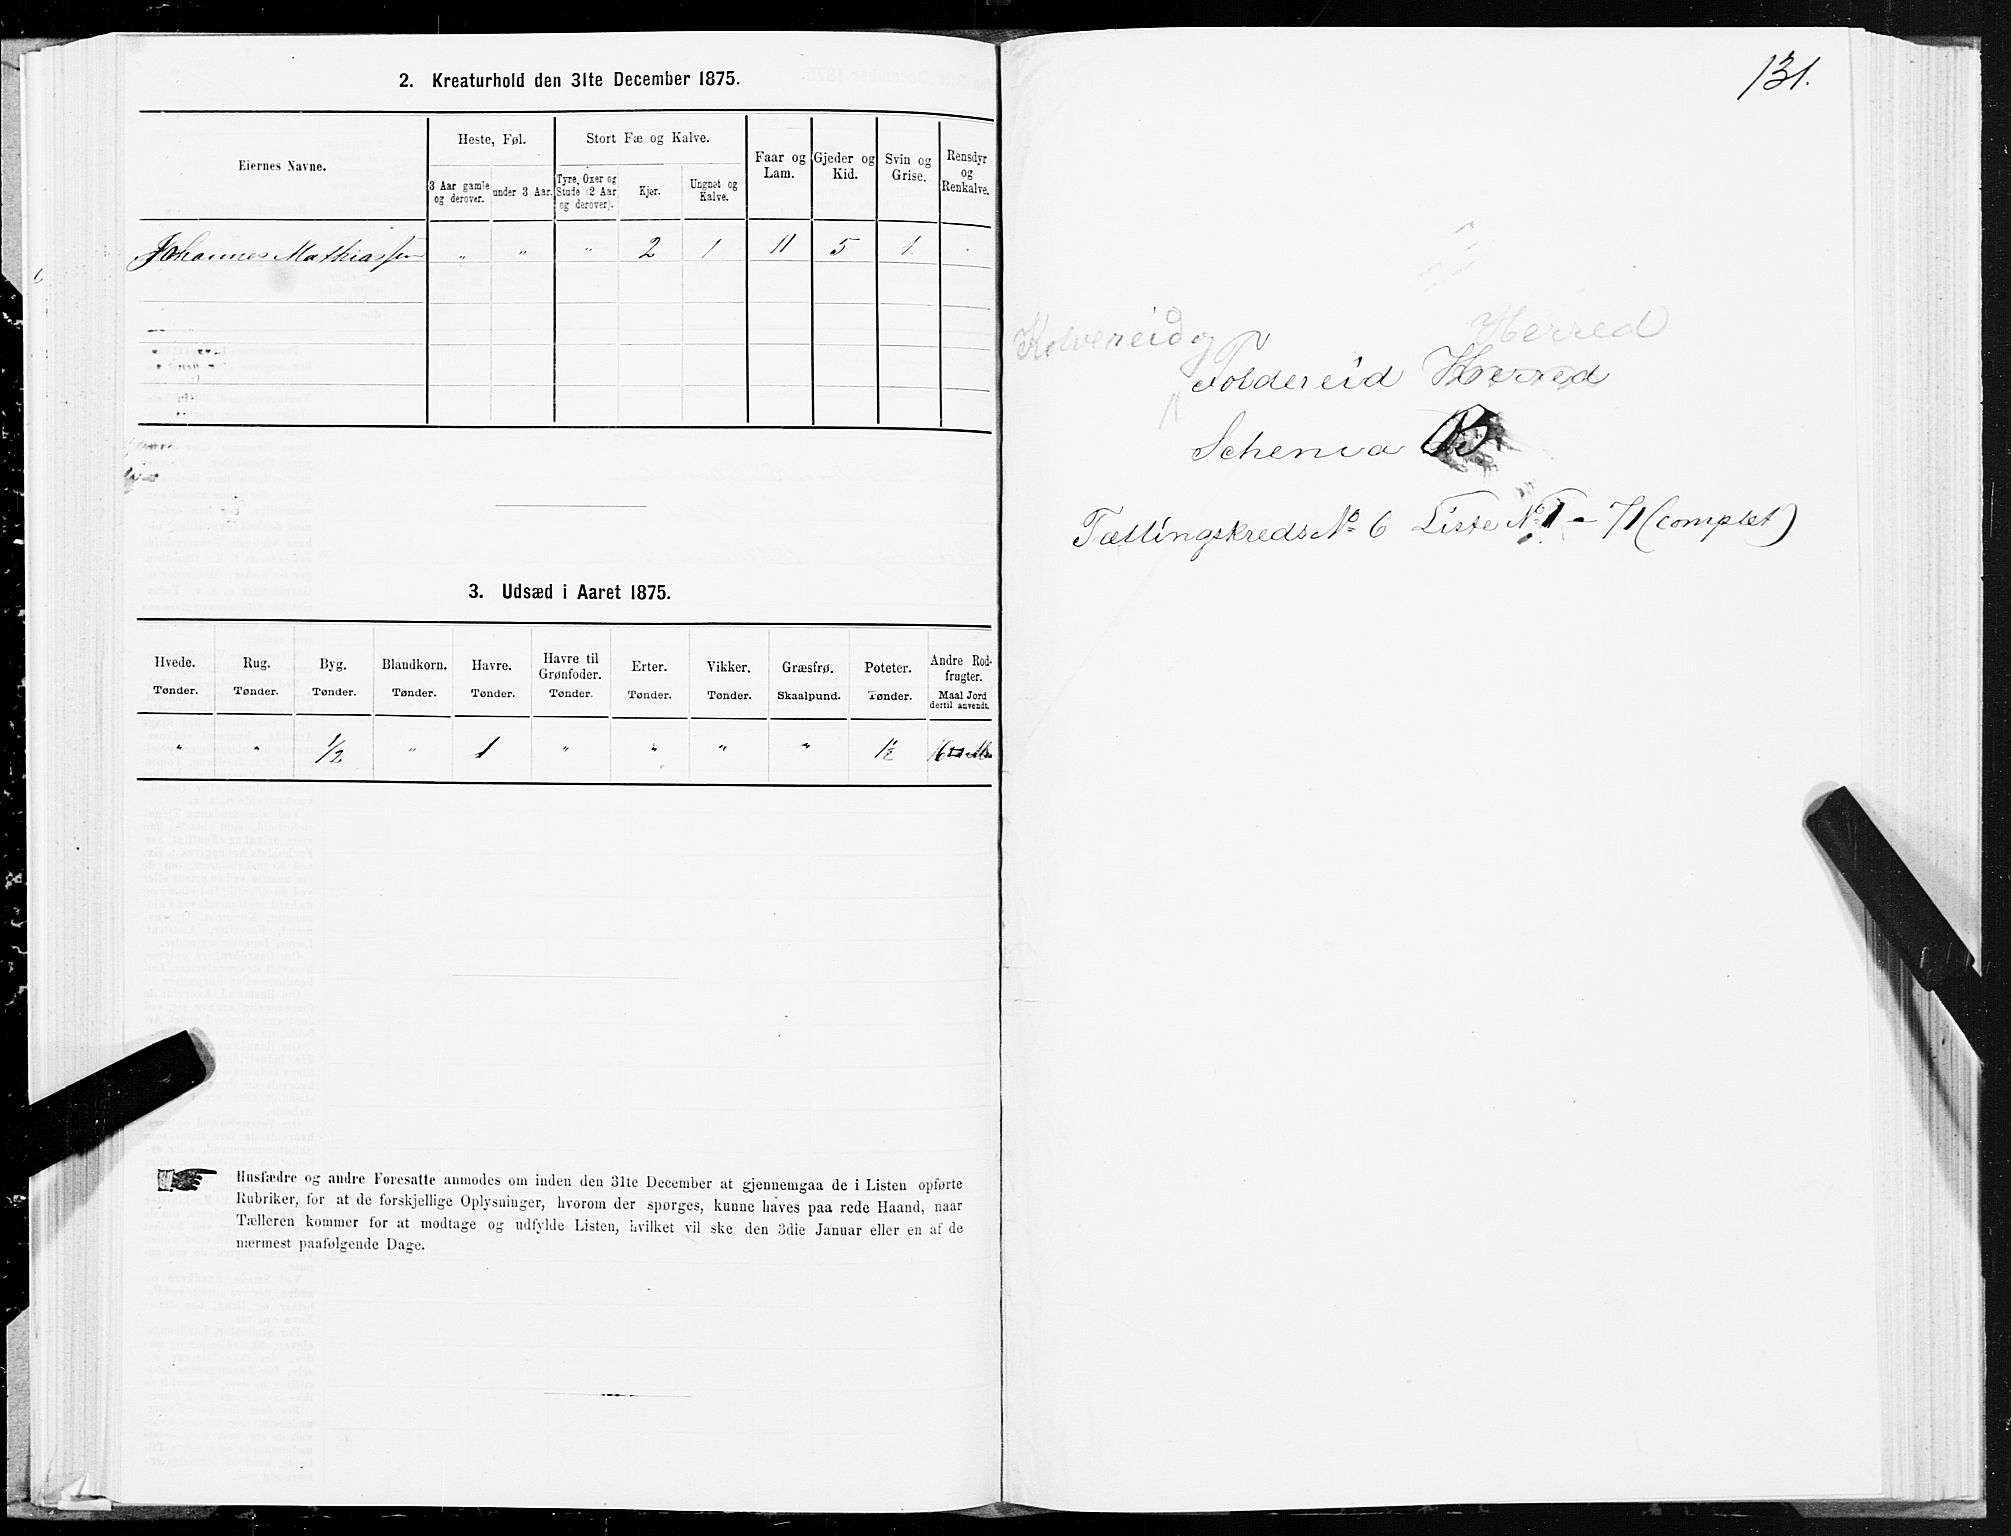 2. Kreaturhold den 31te December 1875.
Eiernes Navne.
Heste, Føl.
Stort Fæ og Kalve.
Faar og Lam.
Gjeder og Kid.
Svin og Grise.
Rensdyr og Renkalve.
3 Aar gamle og derover.
under 3 Aar.
Tyre, Oxer og Stude (2 Aar og derover).
Kjør.
Ungnøt og Kalve.
Johannes Mathiassen " " " 2 1 11 5 1.
3. Udsæd i Aaret 1875.
Hvede. Rug. Byg. Blandkorn. Havre. Havre til Grønfoder. Erter. Vikker. Græsfrø. Poteter. Andre Rodfrugter.
Tønder. Tønder. Tønder. Tønder. Tønder. Tønder. Tønder. Tønder. Skaalpund. Tønder. Maal Jord dertil anvendt.
" " 1/2 " 1 " " " " 1 1/2
Husfædre og andre Foresatte anmodes om inden den 31te December at gjennemgaa de i Listen opførte
Rubriker, for at de forskjellige Oplysninger, hvorom der spørges, kunne haves paa rede Haand, naar
Tælleren kommer for at modtage og udfylde Listen, hvilket vil ske den 3die Januar eller en af de
nærmest paafølgende Dage.
131.
Kolvereid og Herred
Foldereid Herred
Schema B
Tællingskreds No 6 Liste No 1 - 71 (complet)